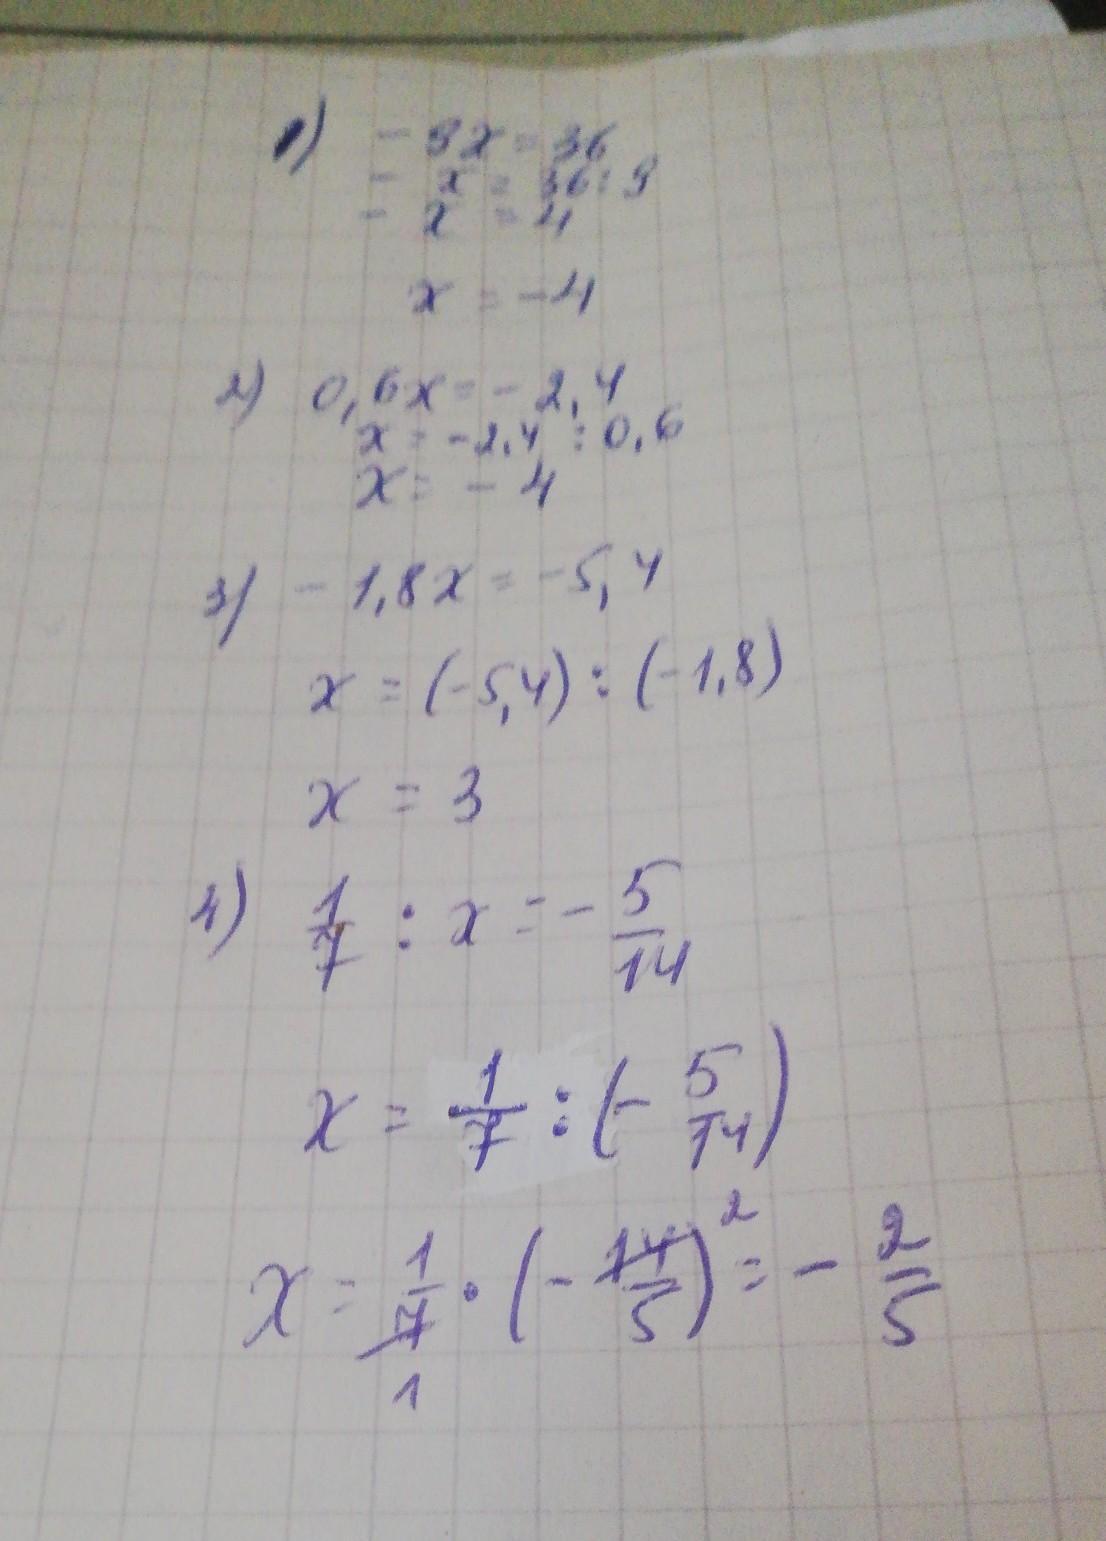 1) - 9x = 36
- x = 36 : 9
- x = 4
x = -4
2) 0,6x = - 2,4
x = -2,4 : 0,6
x = - 4
3) - 1,8x = -5,4
x = (-5,4) : (-1,8)
x = 3
4) 1/7 : x = - 5/14
x = 1/7 : (- 5/14)
x = 1/7 · (- 14/5) = - 2/5
2
1